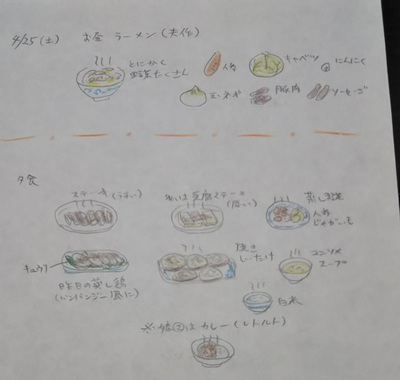 4/25(土) お昼 ラーメン(夫作)
とにかく
野菜たくさん
人参
キャベツ
にんにく
玉ネギ
豚肉
ソーセージ
夕食
ステーキ(うすい)
豆腐ステーキ
蒸し野菜
人参
じゃがいも
キュウリ
昨日の蒸し鶏
(バンバンジー風に)
焼き
しいたけ
コンソメ
スープ
白米
はカレー(レトルト)